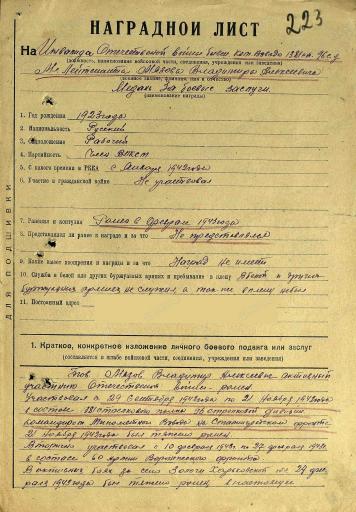 223
НАГРАДНОЙ ЛИСТ
На Инвалида Отечественной войны
(должность, наименование войсковой части, соединения, учреждения или заведения)
Мл. Лейтенанта Владимира Алексеевича
(военное звание, фамилия, имя и отчество)
Медаль За боевые заслуги
(наименование награды)
1. Год рождения 1923 года
2. Национальность Русский
3. Соцположение Рабочий
4. Партийность Член ВЛКСМ
5. С какого времени в РККА С 1942 года
6. Участие в гражданской войне Не участвовал
7. Ранения и контузии Ранен в феврале 1943 года
8. Представлялся ли ранее к награде и за что Не представлялся
9. Какие имеет поощрения и награды и за что Наград не имеет
10. Служба в белой или других буржуазных армиях и пребывание в плену В белой и других
буржуазных армиях не служил а так же в плену не был
11. Постоянный адрес
ДЛЯ ПОДШИВКИ
1. Краткое, конкретное изложение личного боевого подвига или заслуг
(составляется в штабе войсковой части, соединения, учреждения или заведения)
Тов. Владимир Алексеевич активный
участник Отечественной войны
Участвовал с 29 сентября 1942 года по 21 ноября 1942 года
в составе стрелкового полка стрелковой дивизии
командиром Минометного взвода на Сталинградском фронте
21 ноября 1942 года был тяжело ранен.
участвовал с 10 февраля 1943 г. по 27 февраля 1943 г.
в составе 60 армии Воронежского фронта
В боях за село Золочев Харьковской
1943 года был тяжело ранен, в настоящее